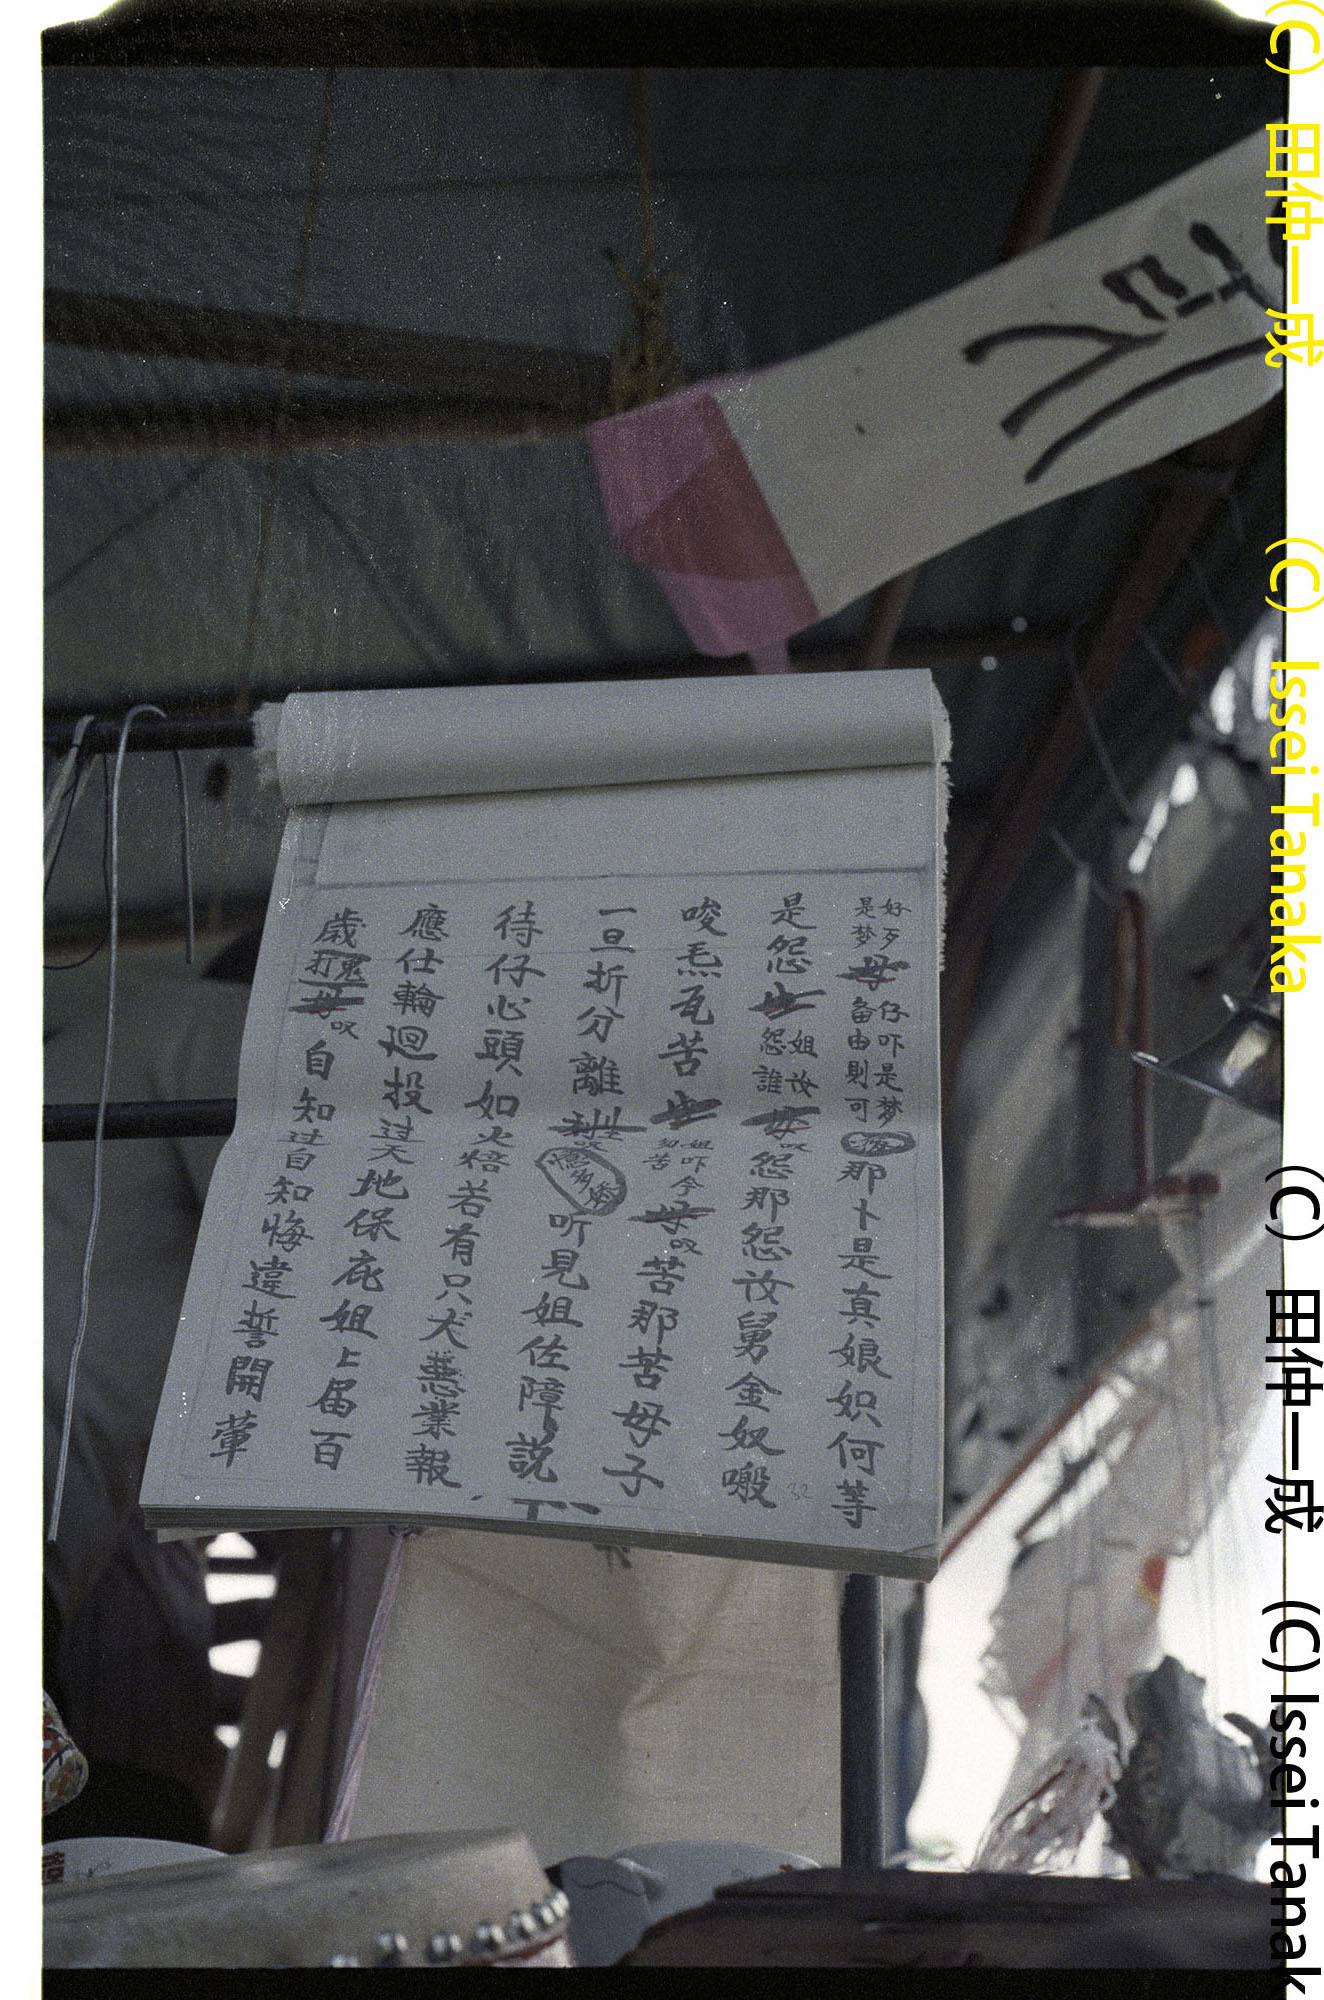 好歹
是梦
母
仔吓是梦
畨由則可
那卜是真娘妷何等
是怨
姐汝
怨誰
怨那怨汝舅金奴嘅
唆毛瓦苦
姐吓今
知苦
苦那苦母子
一旦折分離
听見姐佐障説
待仔心頭如火焙若有只犬悪業報
應仕輪迴投过天地保庇姐上届百
歳打鬼
叹
自知过自知悔違誓開葷
32
(C) 田仲一成 (C) Issei Tanaka
(C) 田仲一成 (C) Issei Tanak